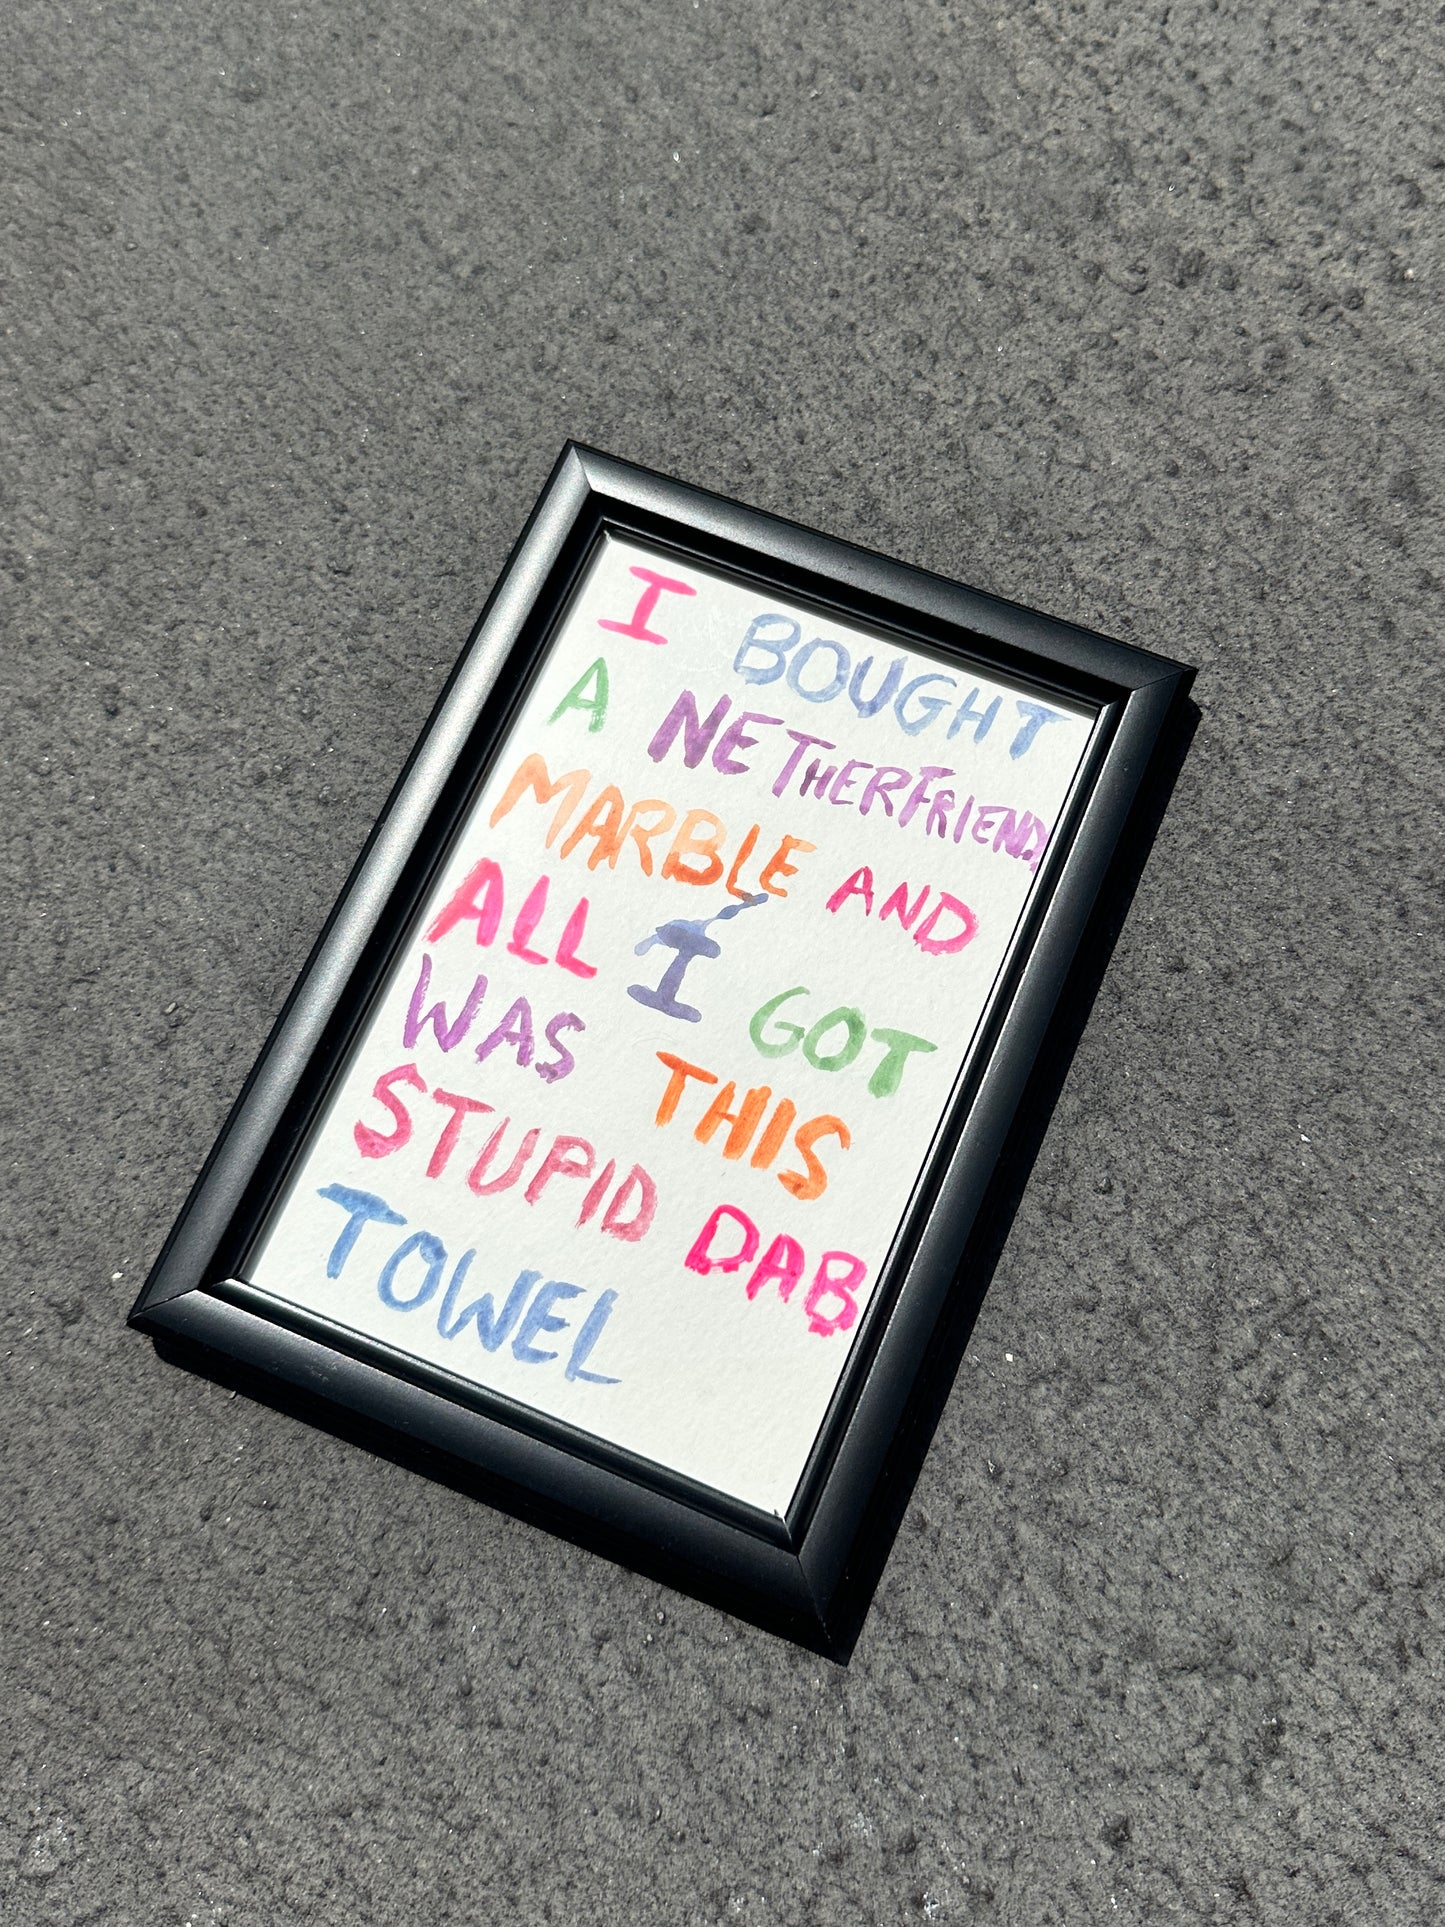 I BOUGHT
A NETHERFRIENDS
MARBLE AND
ALL I GOT
WAS THIS
STUPID DAB
TOWEL